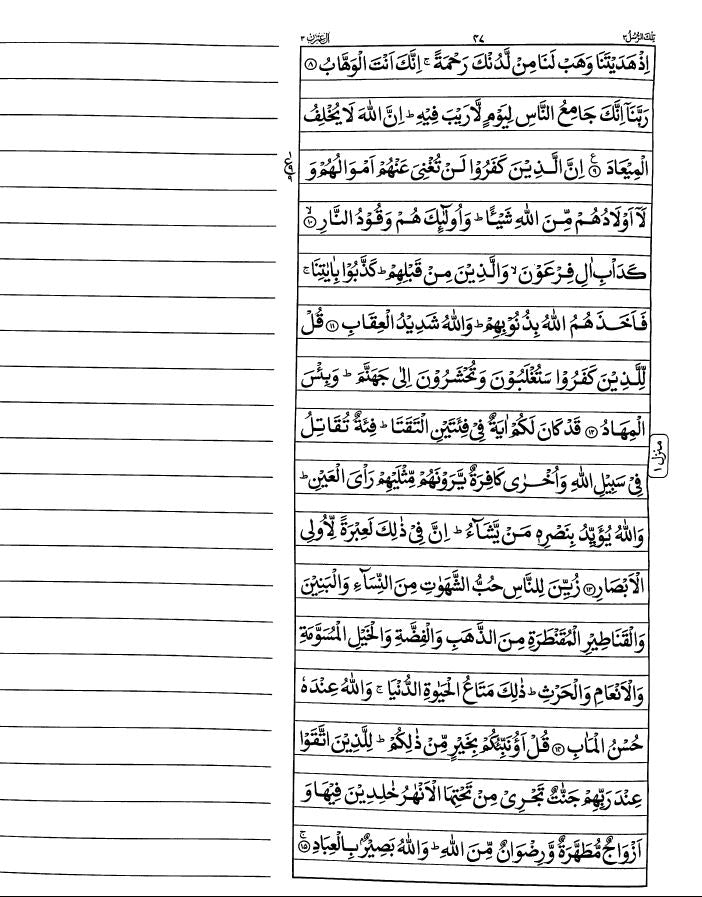 تِلْكَ الرُّسُلُ ٣
٣٧
اٰلِ عِمْرٰنَ ٣
اِذْ هَدَيْتَنَا وَهَبْ لَنَا مِنْ لَّدُنْكَ رَحْمَةً ۚ اِنَّكَ اَنْتَ الْوَهَّابُ ۝٨
رَبَّنَاۤ اِنَّكَ جَامِعُ النَّاسِ لِيَوْمٍ لَّا رَيْبَ فِيْهِ ؕ اِنَّ اللّٰهَ لَا يُخْلِفُ
الْمِيْعَادَ ۝٩ اِنَّ الَّذِيْنَ كَفَرُوْا لَنْ تُغْنِيَ عَنْهُمْ اَمْوَالُهُمْ وَ
لَاۤ اَوْلَادُهُمْ مِّنَ اللّٰهِ شَيْـًٔا ؕ وَاُولٰٓئِكَ هُمْ وَقُوْدُ النَّارِ ۝١٠ۙ
كَدَاْبِ اٰلِ فِرْعَوْنَ ۙ وَالَّذِيْنَ مِنْ قَبْلِهِمْ ؕ كَذَّبُوْا بِاٰيٰتِنَا ۚ
فَاَخَذَهُمُ اللّٰهُ بِذُنُوْبِهِمْ ؕ وَاللّٰهُ شَدِيْدُ الْعِقَابِ ۝١١ قُلْ
لِّلَّذِيْنَ كَفَرُوْا سَتُغْلَبُوْنَ وَتُحْشَرُوْنَ اِلٰى جَهَنَّمَ ؕ وَبِئْسَ
الْمِهَادُ ۝١٢ قَدْ كَانَ لَكُمْ اٰيَةٌ فِيْ فِئَتَيْنِ الْتَقَتَا ؕ فِئَةٌ تُقَاتِلُ
منزل ١
فِيْ سَبِيْلِ اللّٰهِ وَاُخْرٰى كَافِرَةٌ يَّرَوْنَهُمْ مِّثْلَيْهِمْ رَاْيَ الْعَيْنِ ؕ
وَاللّٰهُ يُؤَيِّدُ بِنَصْرِهٖ مَنْ يَّشَآءُ ؕ اِنَّ فِيْ ذٰلِكَ لَعِبْرَةً لِّاُولِى
الْاَبْصَارِ ۝١٣ زُيِّنَ لِلنَّاسِ حُبُّ الشَّهَوٰتِ مِنَ النِّسَآءِ وَالْبَنِيْنَ
وَالْقَنَاطِيْرِ الْمُقَنْطَرَةِ مِنَ الذَّهَبِ وَالْفِضَّةِ وَالْخَيْلِ الْمُسَوَّمَةِ
وَالْاَنْعَامِ وَالْحَرْثِ ؕ ذٰلِكَ مَتَاعُ الْحَيٰوةِ الدُّنْيَا ۚ وَاللّٰهُ عِنْدَهٗ
حُسْنُ الْمَاٰبِ ۝١٤ قُلْ اَؤُنَبِّئُكُمْ بِخَيْرٍ مِّنْ ذٰلِكُمْ ؕ لِلَّذِيْنَ اتَّقَوْا
عِنْدَ رَبِّهِمْ جَنّٰتٌ تَجْرِيْ مِنْ تَحْتِهَا الْاَنْهٰرُ خٰلِدِيْنَ فِيْهَا وَ
اَزْوَاجٌ مُّطَهَّرَةٌ وَّرِضْوَانٌ مِّنَ اللّٰهِ ؕ وَاللّٰهُ بَصِيْرٌۢ بِالْعِبَادِ ۝١٥ۚ